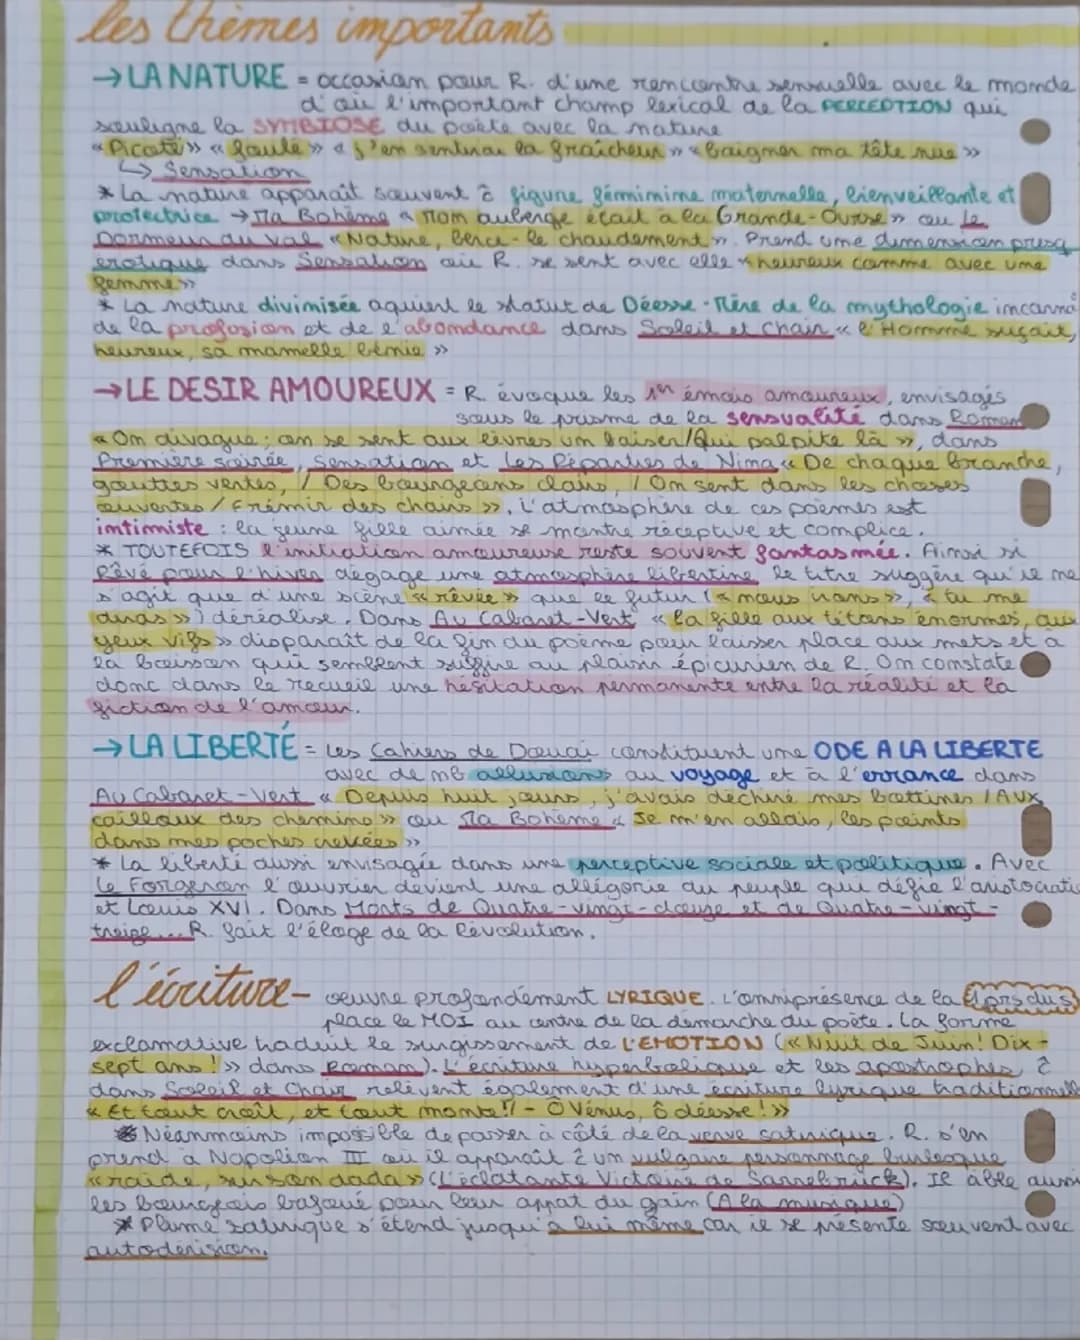 les thèmes importants
→ LA NATURE = occasion pour R. d'une rencontre sensuelle avec le monde
d'où l'important champ lexical de la PERCEPTION qui
souligne la SYMBIOSE du poète avec la nature
« Picoté » « foule » « j'en sentirai la fraîcheur » « baigner ma tête nue »
↳ Sensation
* La nature apparaît souvent ē figure féminine maternelle, bienveillante et
protectrice → Ma Bohème « mon auberge était à la Grande-Ourse » ou Le
Dormeur du Val « Nature, berce-le chaudement ». Prend une dimension presq
érotique dans Sensation où R. se sent avec elle « heureux comme avec une
femme »
* La nature divinisée aquiert le statut de Déesse-Mère de la mythologie incarna
de la profosion et de l'abondance dans Soleil et Chair « l'Homme suçait,
heureux, sa mamelle bénie »
→ LE DESIR AMOUREUX = R. évoque les 1ers émois amoureux, envisagés
sous le prisme de la sensualité dans Roman
« On divague ; on se sent aux lèvres un baiser / Qui palpite là », dans
Première soirée, Sensation et Les Réparties de Nina « De chaque branche,
gouttes vertes, / Des bourgeons clairs, / On sent dans les choses
ouvertes / Frémir des chairs », l'atmosphère de ces poèmes est
intimiste : la jeune fille aimée se montre réceptive et complice.
* TOUTEFOIS l'initiation amoureuse reste souvent fantasmée. Ainsi si
Rêvé pour l'hiver dégage une atmosphère libertine, le titre suggère qu'il ne
s'agit que d'une scène « rêvée » que le futur (« nous irons », « tu me
diras ») déréalise. Dans Au Cabaret-Vert « la fille aux tétons énormes, aux
yeux vifs » disparaît de la fin du poème pour laisser place aux mets et à
la boisson qui semblent suffire au plaisir épicurien de R. On constate
donc dans le recueil une hésitation permanente entre la réalité et la
fiction de l'amour.
→ LA LIBERTÉ = Les Cahiers de Douai constituent une ODE A LA LIBERTE
avec de nb allusions au voyage et à l'errance dans
Au Cabaret-Vert « Depuis huit jours, j'avais déchiré mes bottines / AUX
cailloux des chemins » ou Ma Bohème « Je m'en allais, les poings
dans mes poches crevées »
* La liberté aussi envisagée dans une perceptive sociale et politique. Avec
Le Forgeron l'ouvrier devient une allégorie du peuple qui défie l'aristocratie
et Louis XVI. Dans Morts de Quatre-vingt-douze et de Quatre-vingt-
treize... R. fait l'éloge de la Révolution.
l'écriture - oeuvre profondément LYRIQUE. L'omniprésence de la
place le MOI au centre de la démarche du poète. La forme
exclamative traduit le surgissement de L'EMOTION (« Nuit de Juin ! Dix-
sept ans ! » dans Roman). L'écriture hyperbolique et les apostrophes ē
dans Soleil et Chair relèvent également d'une écriture lyrique traditionnell
« Et tout croît, et tout monte ! / - Ô Vénus, ô déesse ! »
* Néanmoins impossible de passer à côté de la verve satirique. R. s'en
prend à Napoléon III où il apparaît ē un vulgaire personnage burlesque
« raide, sur son dada » (L'éclatante Victoire de Sarrebrück). Il cible aussi
les bourgeois bafoué pour leur appat du gain (A la musique)
* Plume satirique s'étend jusqu'à lui même car il se présente souvent avec
autodérision.